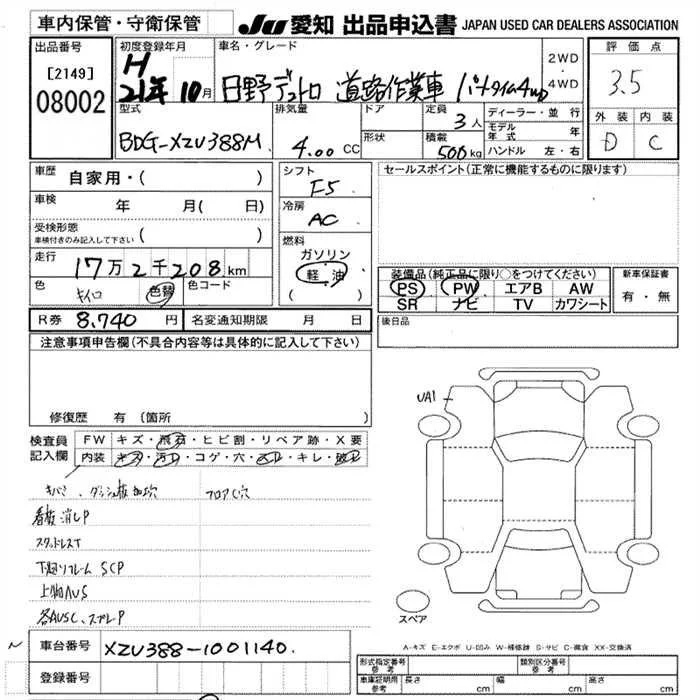 車内保管・守衛保管
JU 愛知 出品申込書 JAPAN USED CAR DEALERS ASSOCIATION
出品番号
[2149]
08002
初度登録年月
H
21年 10月
車名・グレード
日野 デュトロ 道路作業車 パートタイム4WD
2WD
・
4WD
評価点
3.5
外装 内装
D C
型式
BDG-XZU388M
排気量
4.00 CC
ドア
形状
定員
3人
積載
500kg
ディーラー・並行
モデル年式 年
ハンドル 左・右
車歴
自家用・( )
車検
年 月( 日)
受検形態
車検付きのみ記入して下さい ( )
走行
17万2千208km
色
キイロ 色替
色コード
R券 8,740 円
名変通知期限 月 日
シフト
F5
冷房
AC
燃料
ガソリン
軽油
( )
セールスポイント(正常に機能するものに限ります)
装備品(純正品に限り○をつけてください)
PS PW エアB AW
SR ナビ TV カワシート
新車保証書
有・無
後日品
注意事項申告欄(不具合内容等は具体的に記入して下さい)
修復歴 有(箇所 )
検査員
記入欄
FW キズ・飛石・ヒビ割・リペア跡・X要
内装 キズ・汚レ・コゲ・穴・・キレ・破レ
キバミ、ダッシュ板加工穴 フロアC穴
看板消しP
スタッドレスT
下廻リフレームSCP
上物AUS
各AUSC、スプレP
UA1
スペア
A-キズ E-エクボ U-凹み W-補修跡 S-サビ C-腐食 XX-交換済
車台番号 XZU388-1001140.
登録番号
型式指定番号
参考
類別区分番号
参考
車庫証明用
参考
長さ cm 幅 cm 高さ cm